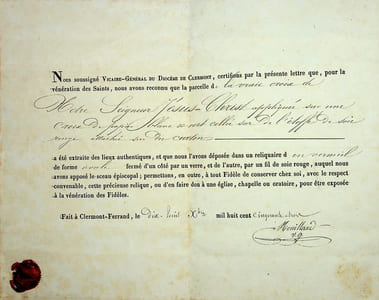 Nous soussigné VICAIRE-GÉNÉRAL DU DIOCÈSE DE CLERMONT, certifions par la présente lettre que, pour la
vénération des Saints, nous avons reconnu que la parcelle d. la vraie croix de
Notre Seigneur Jésus-Christ appliquée sur une
croix de papier blanc et collée sur de l'étoffe de soie
rouge sur du carton
a été extraite des lieux authentiques, et que nous l'avons déposée dans un reliquaire d en vermeil
de forme ronde fermé d'un côté par un verre, et de l'autre, par un fil de soie rouge, auquel nous
avons apposé le sceau épiscopal; permettons, en outre, à tout Fidèle de conserver chez soi, avec le respect
convenable, cette précieuse relique, ou d'en faire don à une église, chapelle ou oratoire, pour être exposée
à la vénération des Fidèles.
Fait à Clermont-Ferrand, le dix-huit Xbre mil huit cent cinquante
v.g.